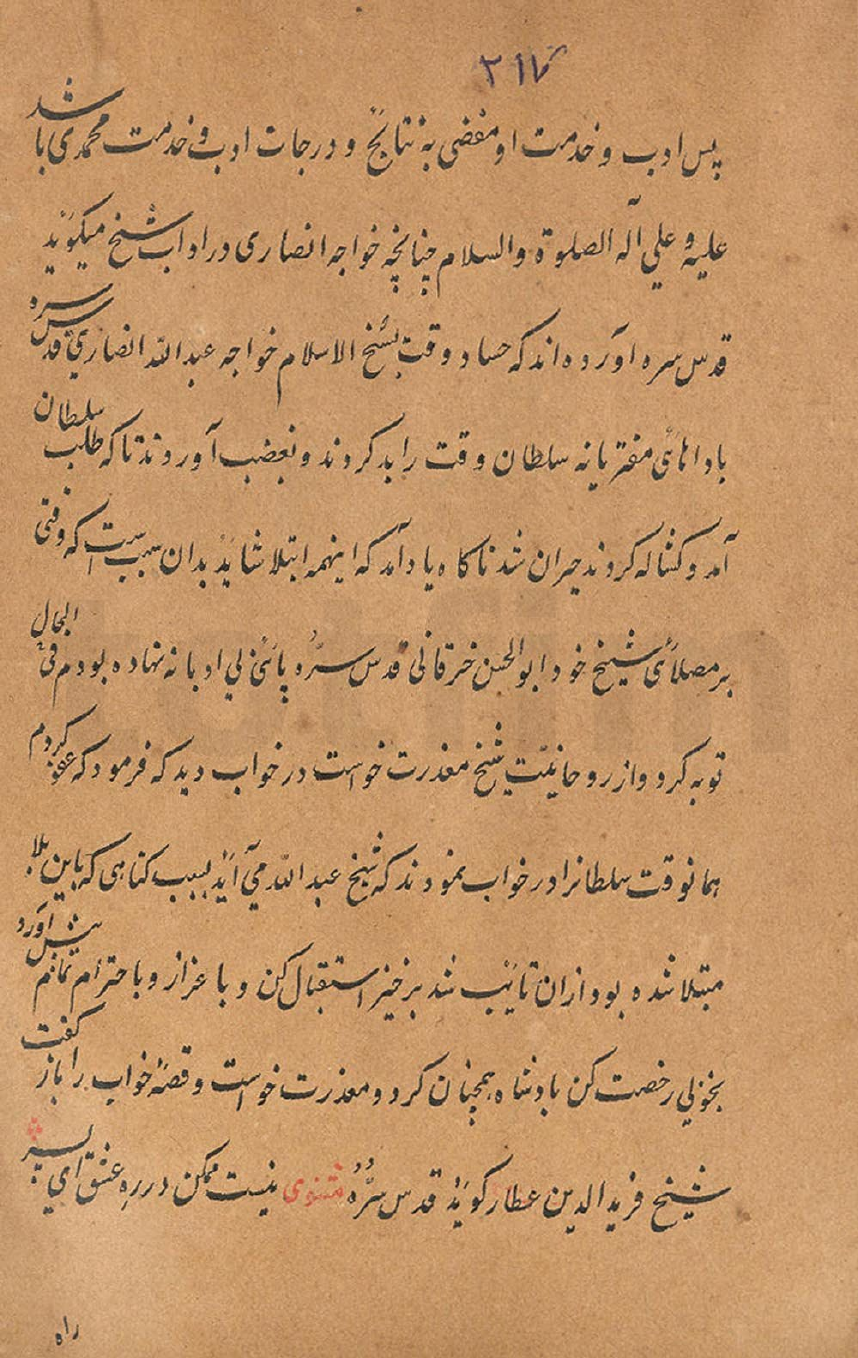 ۲۱۷
پس ادب و خدمت او مفضی به نتایج و درجات ادب و خدمت محمدی باشد
علیه و علی آله الصلوة والسلام چنانچه خواجه انصاری در اداب شیخ میکوید
قدس سره اورده اند که حساد وقت بشیخ الاسلام خواجه عبدالله انصاری قدس سره
باداهائی مفتریانه سلطان وقت را بد کردند و بغضب آوردند تا که طلب سلطان
آمد و کشاله کردند حیران شد ناکاه یاد آمد که اینهمه ابتلا شاید بدان سبب است که وقتی
بر مصلائی شیخ خود ابوالحسن خرقانی قدس سره پائی بی ادبانه نهاده بودم فی الحال
توبه کرد و از روحانیت شیخ معذرت خواست در خواب دید که فرمود که عفو کردم
همانوقت سلطانرا در خواب نمودند که شیخ عبدالله می آید بسبب کناهی که باین بلا
مبتلا شده بود ازان تایب شد برخیز استقبال کن و باعزاز و باحترام تمام پیش آورد
بخوبی رخصت کن بادشاه همچنان کرد و معذرت خواست و قصهٔ خواب را باز کفت
شیخ فرید الدین عطار کوید قدس سره مثنوی نیست ممکن در ره عشق ای پسر
راه